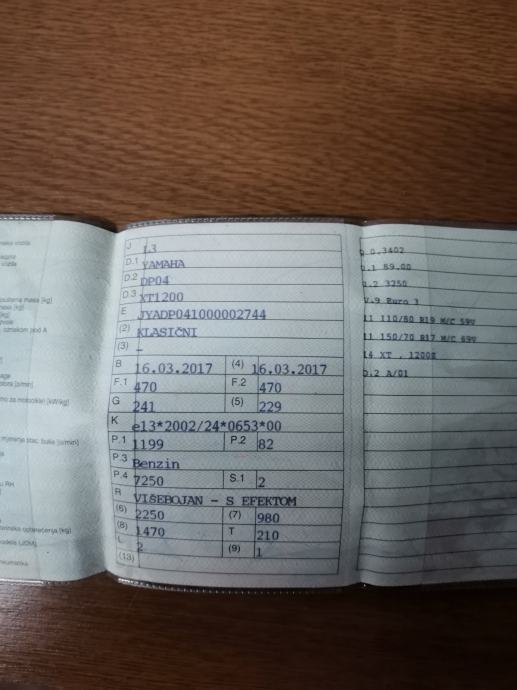 J L3
D.1 YAMAHA
D.2 DP04
D.3 XT1200
E JYADP041000002744
(2) KLASIČNI
(3) -
B 16.03.2017 (4) 16.03.2017
F.1 470 F.2 470
G 241 (5) 229
K e13*2002/24*0653*00
P.1 1199 P.2 82
P.3 Benzin
P.4 7250 S.1 2
R VIŠEBOJAN - S EFEKTOM
(6) 2250 (7) 980
(8) 1470 T 210
L 2 (9) 1
(13)
0,3402
.1 89.00
.2 3250
V.9 Euro 3
110/80 R19 M/C 59V
150/70 R17 M/C 69V
14 XT , 1200Z
.2 A/01
vozila
masa [kg]
[kg]
oznakom pod A
[kW/kg]
mjerenja stac. buke
u RH
opterećenja [kg]